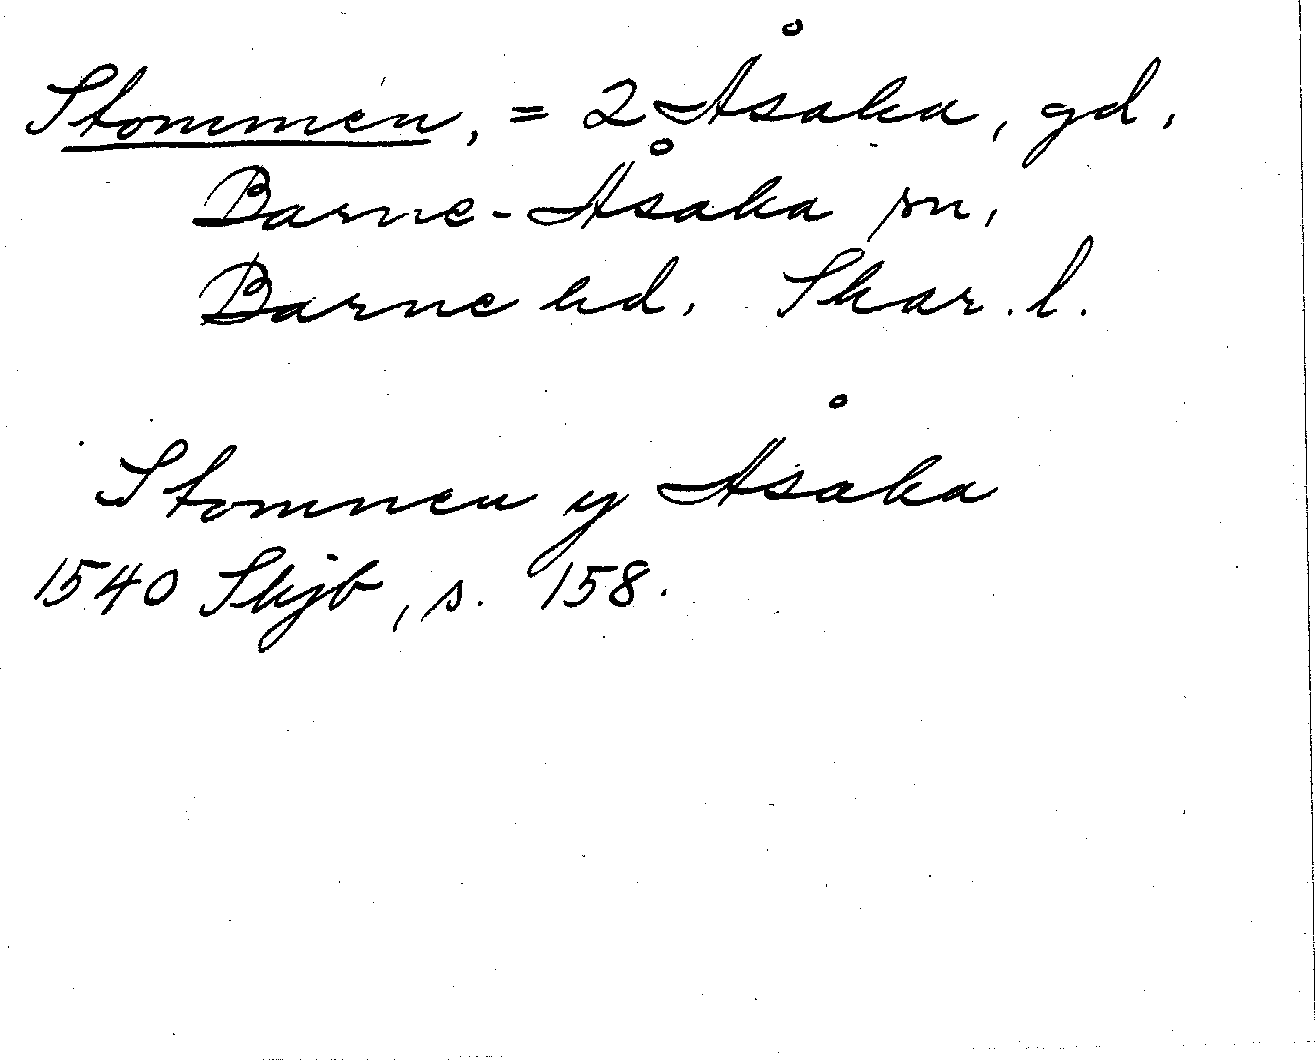 Stommen, = 2 Åsaka, gd,
Barne-Åsaka sn,
Barne hd. Skar. l.
Stomnen y Åsaka
1540 Skjb, s. 158.